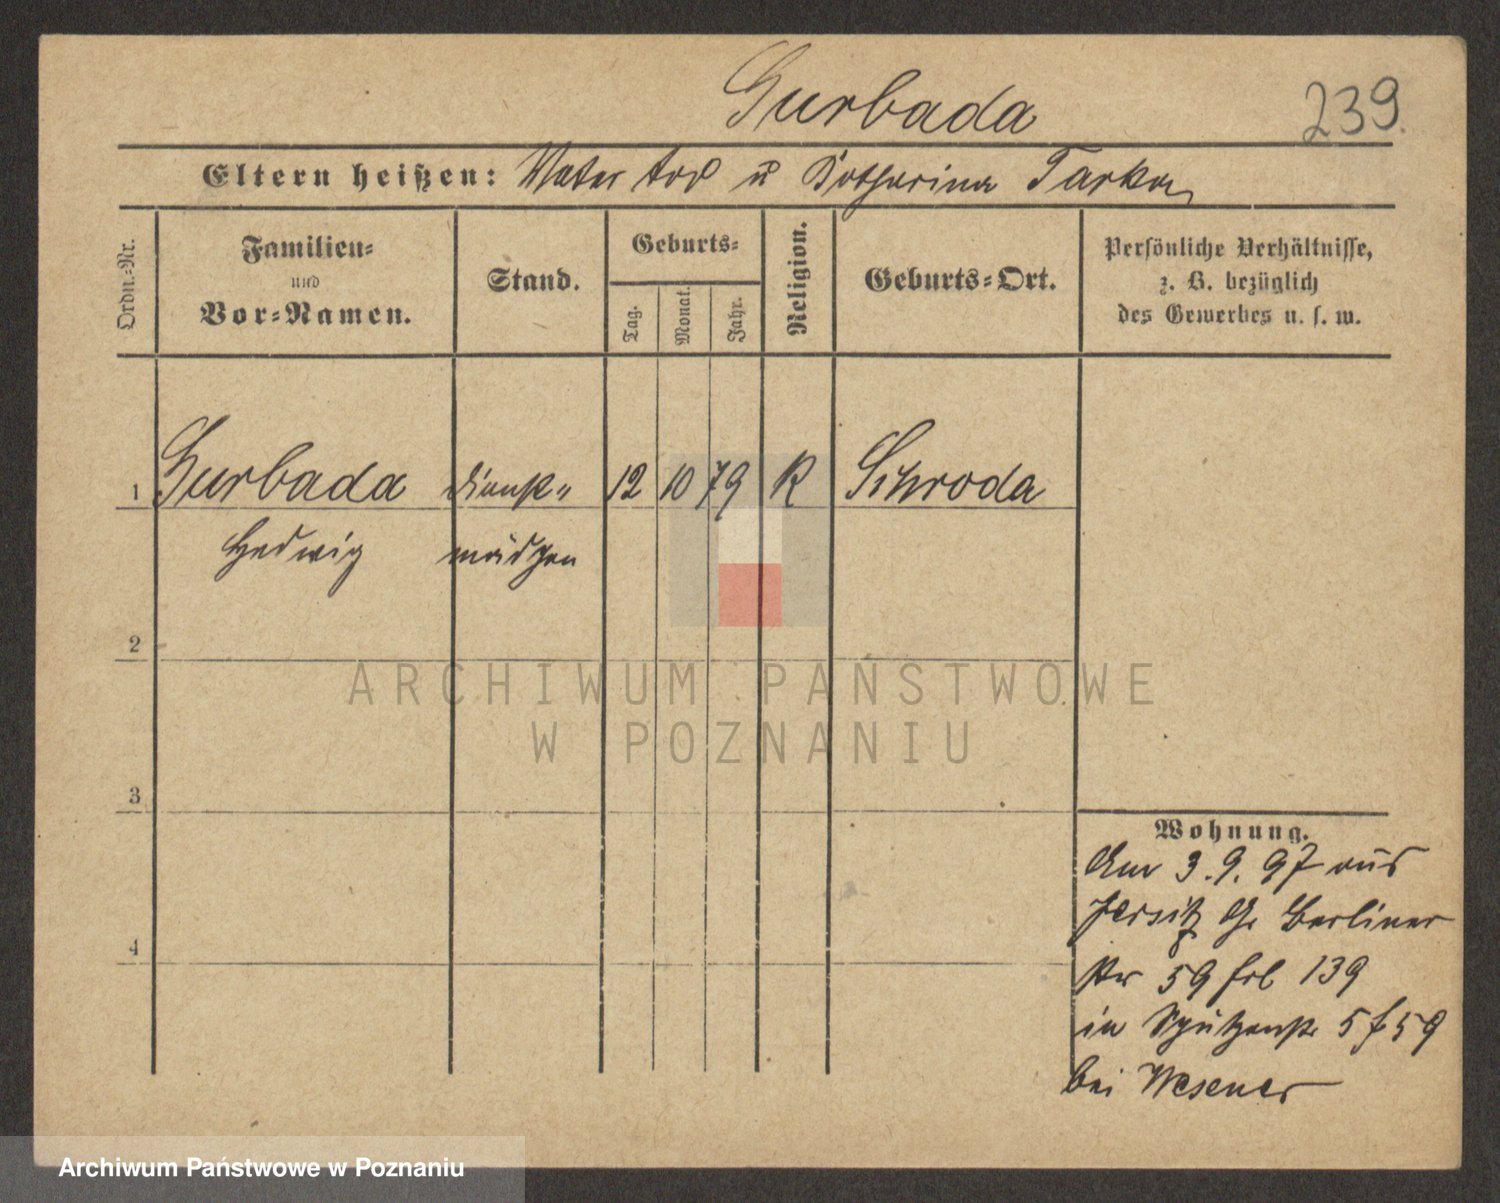 Gurbada
239.
Eltern heißen: Vater tod u Katharina Tarka
Ordn.-Nr.
Familien-
und
Vor-Namen.
Stand.
Geburts-
Tag.
Monat.
Jahr.
Religion.
Geburts-Ort.
Persönliche Verhältnisse,
z. B. bezüglich
des Gewerbes u. s. w.
1 Gurbada dienst- 12 10 79 K Schroda
Hedwig mädchen
2
3
4
Wohnung.
Am 3.9.97 aus
Jersitz Gr Berliner
str 59 frl 139
in Schützenstr 5 f 59
bei Wesener
ARCHIWUM PAŃSTWOWE
W POZNANIU
Archiwum Państwowe w Poznaniu